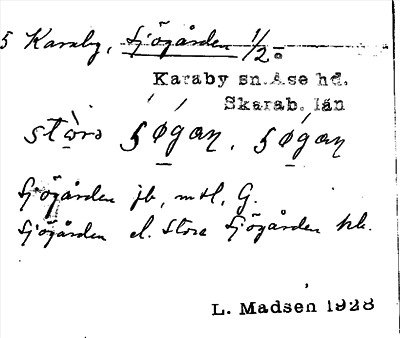 5 Karaby, Sjögården 1/2
Karaby sn. Åse hd.
Skarab. län
Sjögården jb, mtl, G.
Sjögården el. Stora Sjögården hk.
L. Madsen 1928